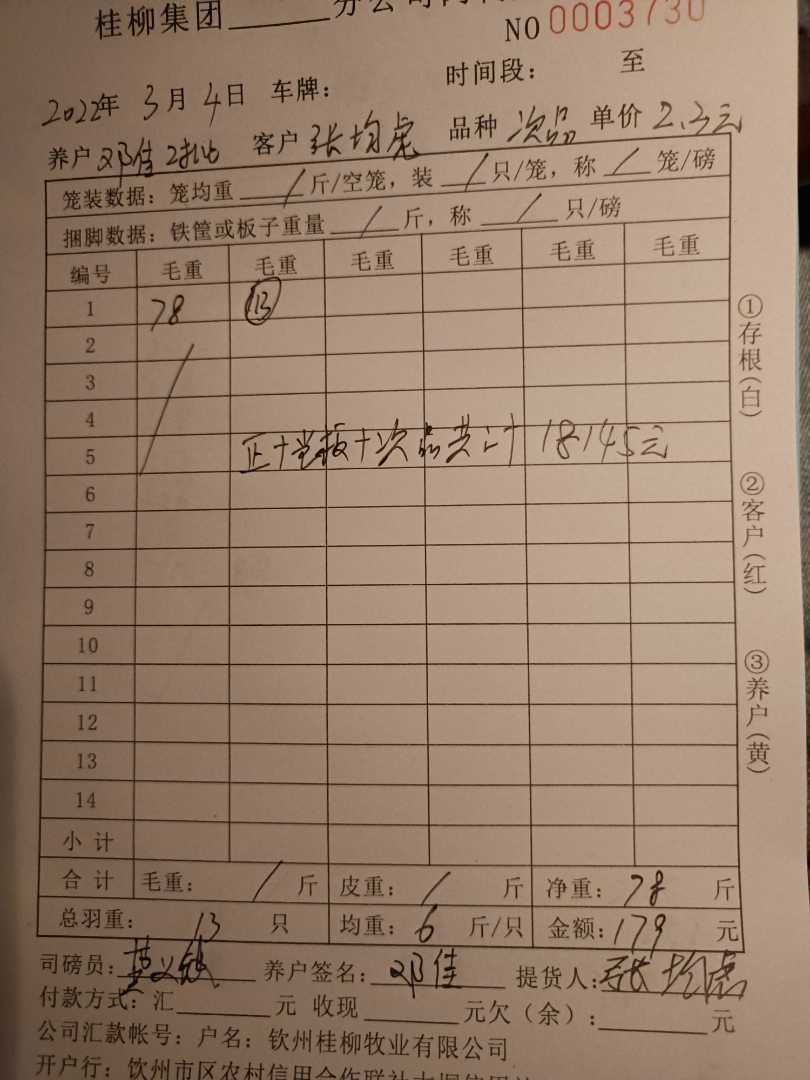 桂柳集团______分公司
NO 0003730
2022年 3月 4日 车牌: 时间段: 至
养户 邓佳2批 客户 张均虎 品种 次品 单价 2.3元
笼装数据: 笼均重 / 斤/空笼, 装 / 只/笼, 称 / 笼/磅
捆脚数据: 铁筐或板子重量 / 斤, 称 / 只/磅
编号 毛重 毛重 毛重 毛重 毛重 毛重
1 78 13
2
3
4
5 正+光板+次品共计 18145元
6
7
8
9
10
11
12
13
14
小计
合计 毛重: / 斤 皮重: / 斤 净重: 78 斤
总羽重: 13 只 均重: 6 斤/只 金额: 179 元
①存根(白)
②客户(红)
③养户(黄)
司磅员: 养户签名: 邓佳 提货人: 张均虎
付款方式: 汇______元 收现______元欠(余):______元
公司汇款帐号: 户名: 钦州桂柳牧业有限公司
开户行: 钦州市区农村信用合作联社